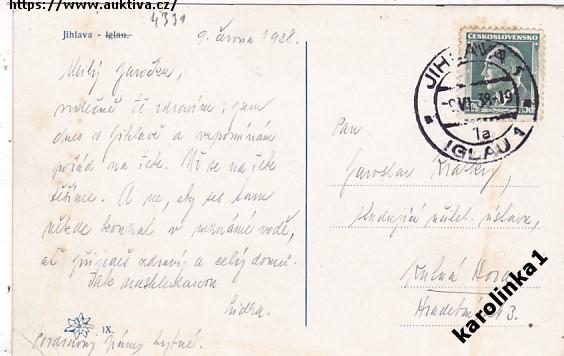 https://www.auktiva.cz/
4331
Jihlava - Iglau.
9. června 1938.
Milý Jaroušku,
srdečně Tě zdravím, jsem
dnes v Jihlavě a vzpomínám
pořád na Tebe. Už se na Tebe
těšíme. A ne, aby ses tam
někde koupal v neznámé vodě,
ať přijedeš zdravý a celý domů.
Tak nashledanou
Lidka.
IX.
ČESKOSLOVENSKO
50
JIHLAVA 1
9.VI.38-19
1a
IGLAU 1
Pan
Jaroslav Krátký,
studující učitel. ústavu,
Kutná Hora
Hradební 13.
karolinka1